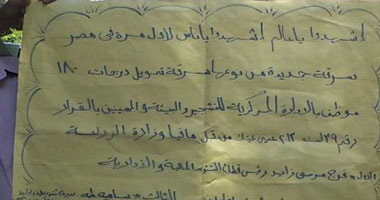 اشهدوا يا عالم اشهدوا يا ناس لأول مرة فى مصر
سرقات جديدة من نوعها سرقة تمويل درجات ١٨٠
موظف بالادارة المركزية للتشجير والبيئة والمعينين بالقرار
رقم ٣٩ لسنة ٢٠١٢ من قبل مافيا وزارة الزراعة
الأول = فرج مرسى زايد رئيس قطاع الشئون المالية والادارية
الثالث =